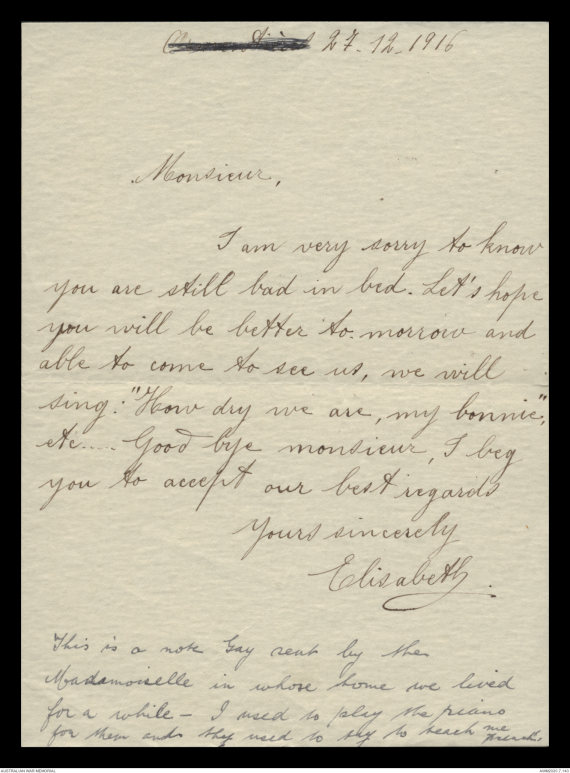 27-12-1916
Monsieur,
I am very sorry to know
you are still bad in bed. Let's hope
you will be better to-morrow and
able to come to see us, we will
sing: "How dry we are, my bonnie",
etc.... Good bye monsieur, I beg
you to accept our best regards
Yours sincerely
Elisabeth.
This is a note Gay sent by the
Madamoiselle in whose home we lived
for a while - I used to play the piano
for them and they used to try to teach me
french.
AUSTRALIAN WAR MEMORIAL